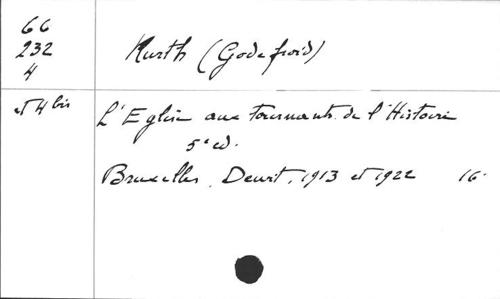 66
232
4
Kurth (Godefroid)
et 4 bis
L'Eglise aux tournants de l'Histoire
5e ed.
Bruxelles, Dewit, 1913 et 1922 16